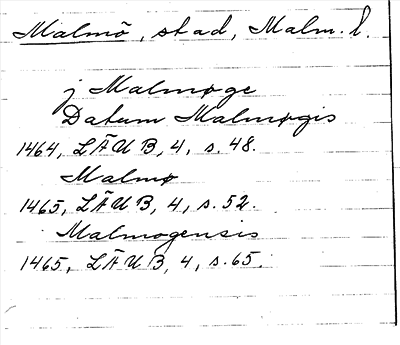 Malmö, stad, Malm. l.
j Malmøge
Datum Malmøgis
1464, LÄUB, 4, s. 48.
Malmø
1465, LÄUB, 4, s. 52.
Malmogensis
1465, LÄUB, 4, s. 65.